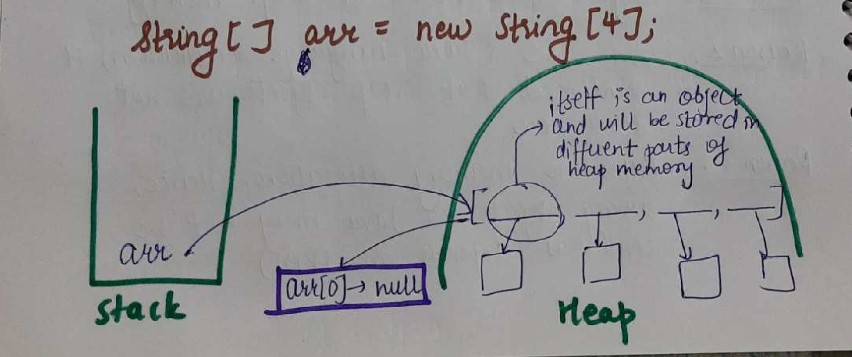 String[] arr = new String[4];
itself is an object
and will be stored in
diffuent parts of
heap memory
[ ___ ___, ___, ___ ]
arr
arr[0] → null
Stack
Heap